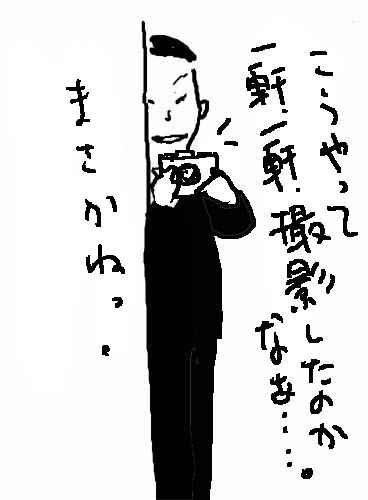 こうやって
一軒一軒
撮影したのか
なあ・・・・。
まさかねっ。